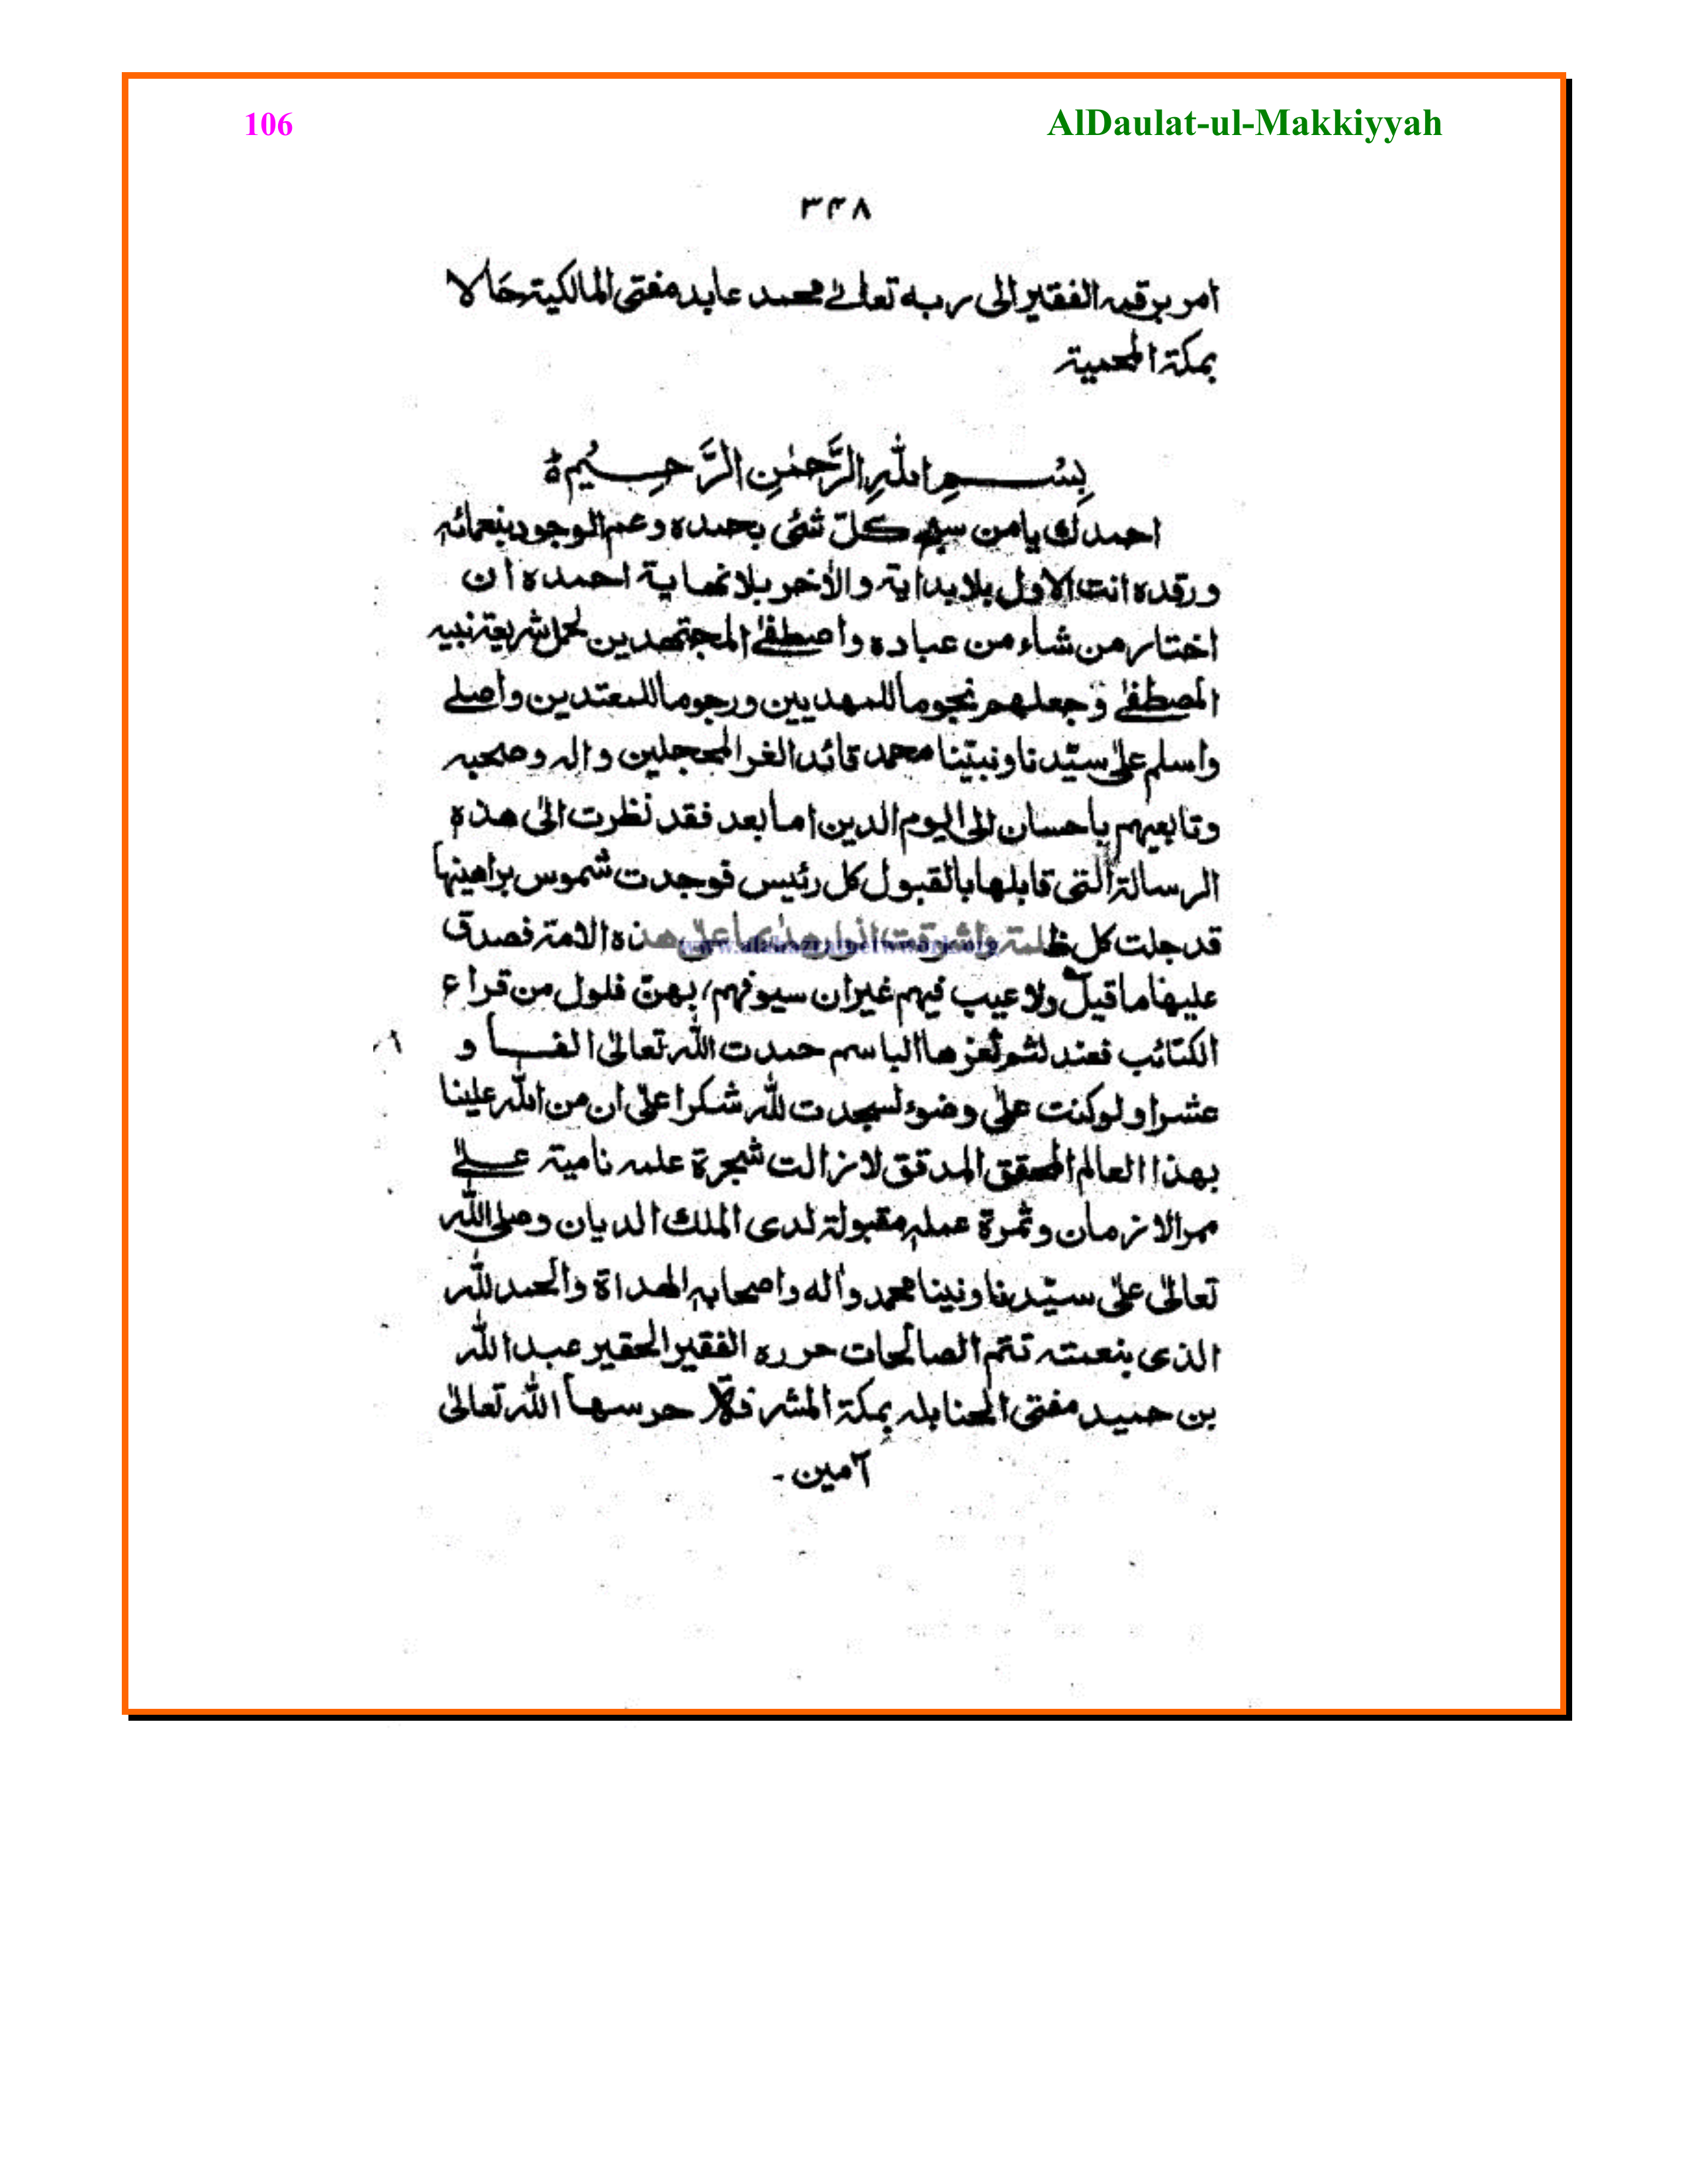 106 AlDaulat-ul-Makkiyyah
۳۴۸
امر برقمه الفقير الى ربه تعالے محمد عابد مفتی المالكية حالا
بمكة المحمية
بِسْمِ اللهِ الرَّحْمٰنِ الرَّحِيْمِ ة
احمدك يا من سبح كلّ شئی بحمده وعم الوجود بنعمائه
ورفده انت الاول بلا بداية والأخر بلا نهاية احمده ان
اختار من شاء من عباده واصطفیٰ المجتهدين لحمل شريعة نبيه
المصطفیٰ وجعلهم نجوما للمهديين ورجوما للمعتدين واصلے
واسلم علیٰ سيّدنا ونبيّنا محمد قائد الغر المحجلين واله وصحبه
وتابعيهم باحسان الى اليوم الدين اما بعد فقد نظرت الیٰ هذه
الرسالة التی قابلها بالقبول كل رئيس فوجدت شموس براهينها
قد جلت كل ظلمة واشرقت انوار هداها علیٰ هذه الامة فصدق
www.alahazratnetwork.org
عليها ما قيل ولا عيب فيهم غيران سيوفهم، بهنّ فلول من قراع
الكتائب فعند لثم ثغرها الباسم حمدت الله تعالیٰ الفا و
عشرا ولو كنت علیٰ وضوء لسجدت لله شكرا علیٰ ان من الله علينا
بهذا العالم المحقق المدقق لا زالت شجرة علمه نامية علےٰ
ممر الازمان وثمرة عمله مقبولة لدى الملك الديان وصلی الله
تعالیٰ علیٰ سيّدنا ونبينا محمد وأله واصحابه الهداة والحمد لله
الذی بنعمته تتم الصالحات حرره الفقير الحقير عبد الله
بن حميد مفتی الحنابله بمكة المشرفة حرسها الله تعالیٰ
آمين ۔